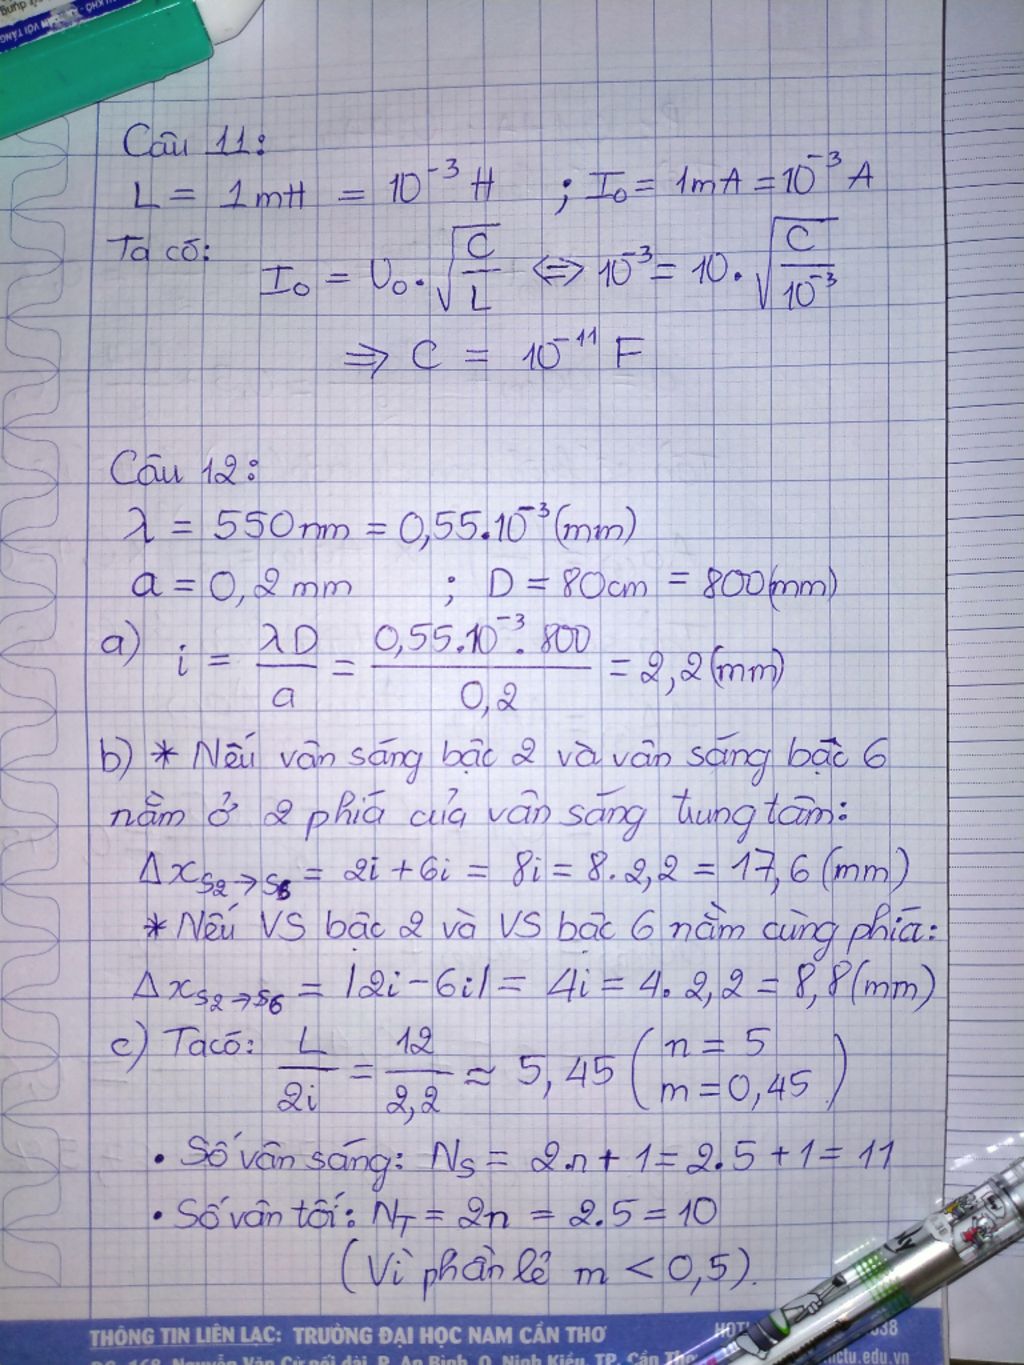 Câu 11:
L = 1mH = 10⁻³ H ; I₀ = 1mA = 10⁻³ A
Ta có: I₀ = U₀.√(C/L) <=> 10⁻³ = 10.√(C/10⁻³)
=> C = 10⁻¹¹ F
Câu 12:
λ = 550nm = 0,55.10⁻³ (mm)
a = 0,2 mm ; D = 80cm = 800(mm)
a) i = λD/a = (0,55.10⁻³.800)/0,2 = 2,2(mm)
b) * Nếu vân sáng bậc 2 và vân sáng bậc 6
nằm ở 2 phía của vân sáng trung tâm:
Δx_S₂→S₆ = 2i + 6i = 8i = 8.2,2 = 17,6 (mm)
* Nếu VS bậc 2 và VS bậc 6 nằm cùng phía:
Δx_S₂→S₆ = |2i - 6i| = 4i = 4.2,2 = 8,8(mm)
c) Ta có: L/2i = 12/2,2 ≈ 5,45 (n = 5
m = 0,45)
• Số vân sáng: N_S = 2.n + 1 = 2.5 + 1 = 11
• Số vân tối: N_T = 2n = 2.5 = 10
(Vì phần lẻ m < 0,5).
THÔNG TIN LIÊN LẠC: TRƯỜNG ĐẠI HỌC NAM CẦN THƠ